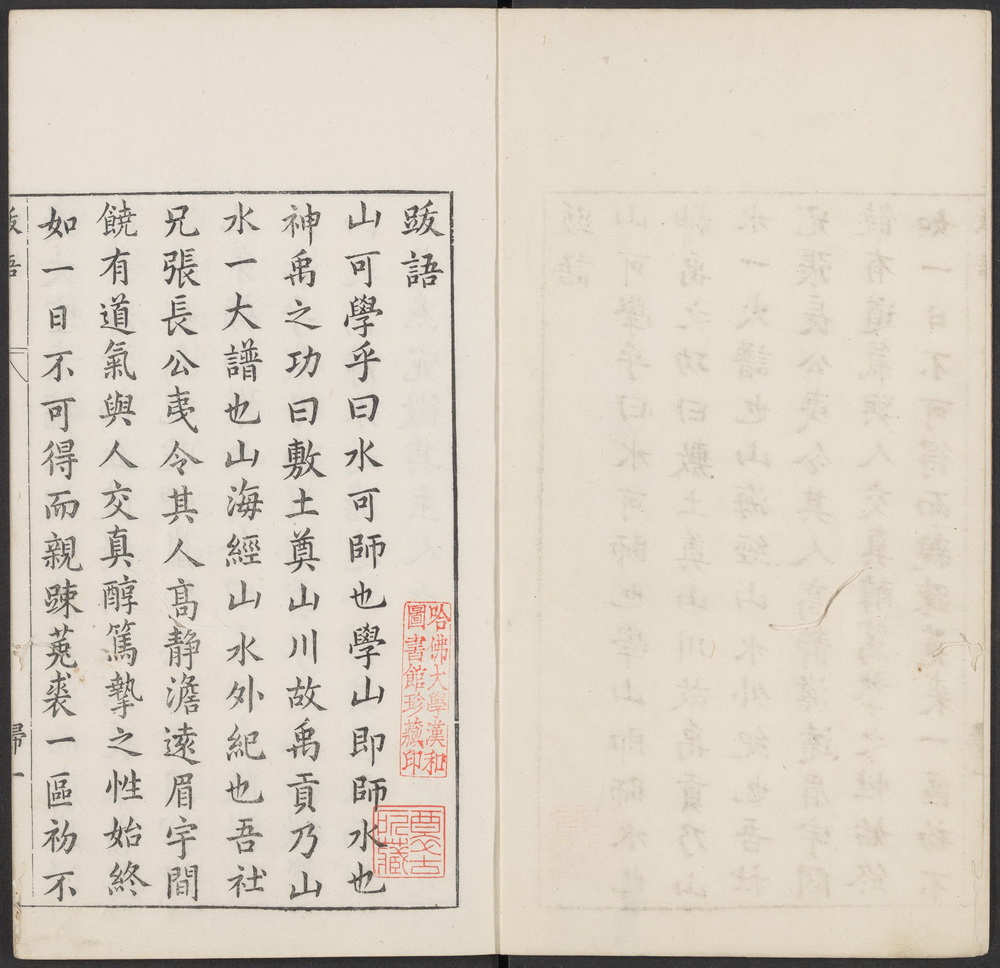 跋語
山可學乎曰水可師也學山即師水也
神禹之功曰敷土奠山川故禹貢乃山
水一大譜也山海經山水外紀也吾社
兄張長公夷令其人高静澹遠眉宇間
饒有道氣與人交真醇篤摯之性始終
如一日不可得而親踈菟裘一區初不
跋語
歸一
哈佛大學漢和
圖書館珍藏印